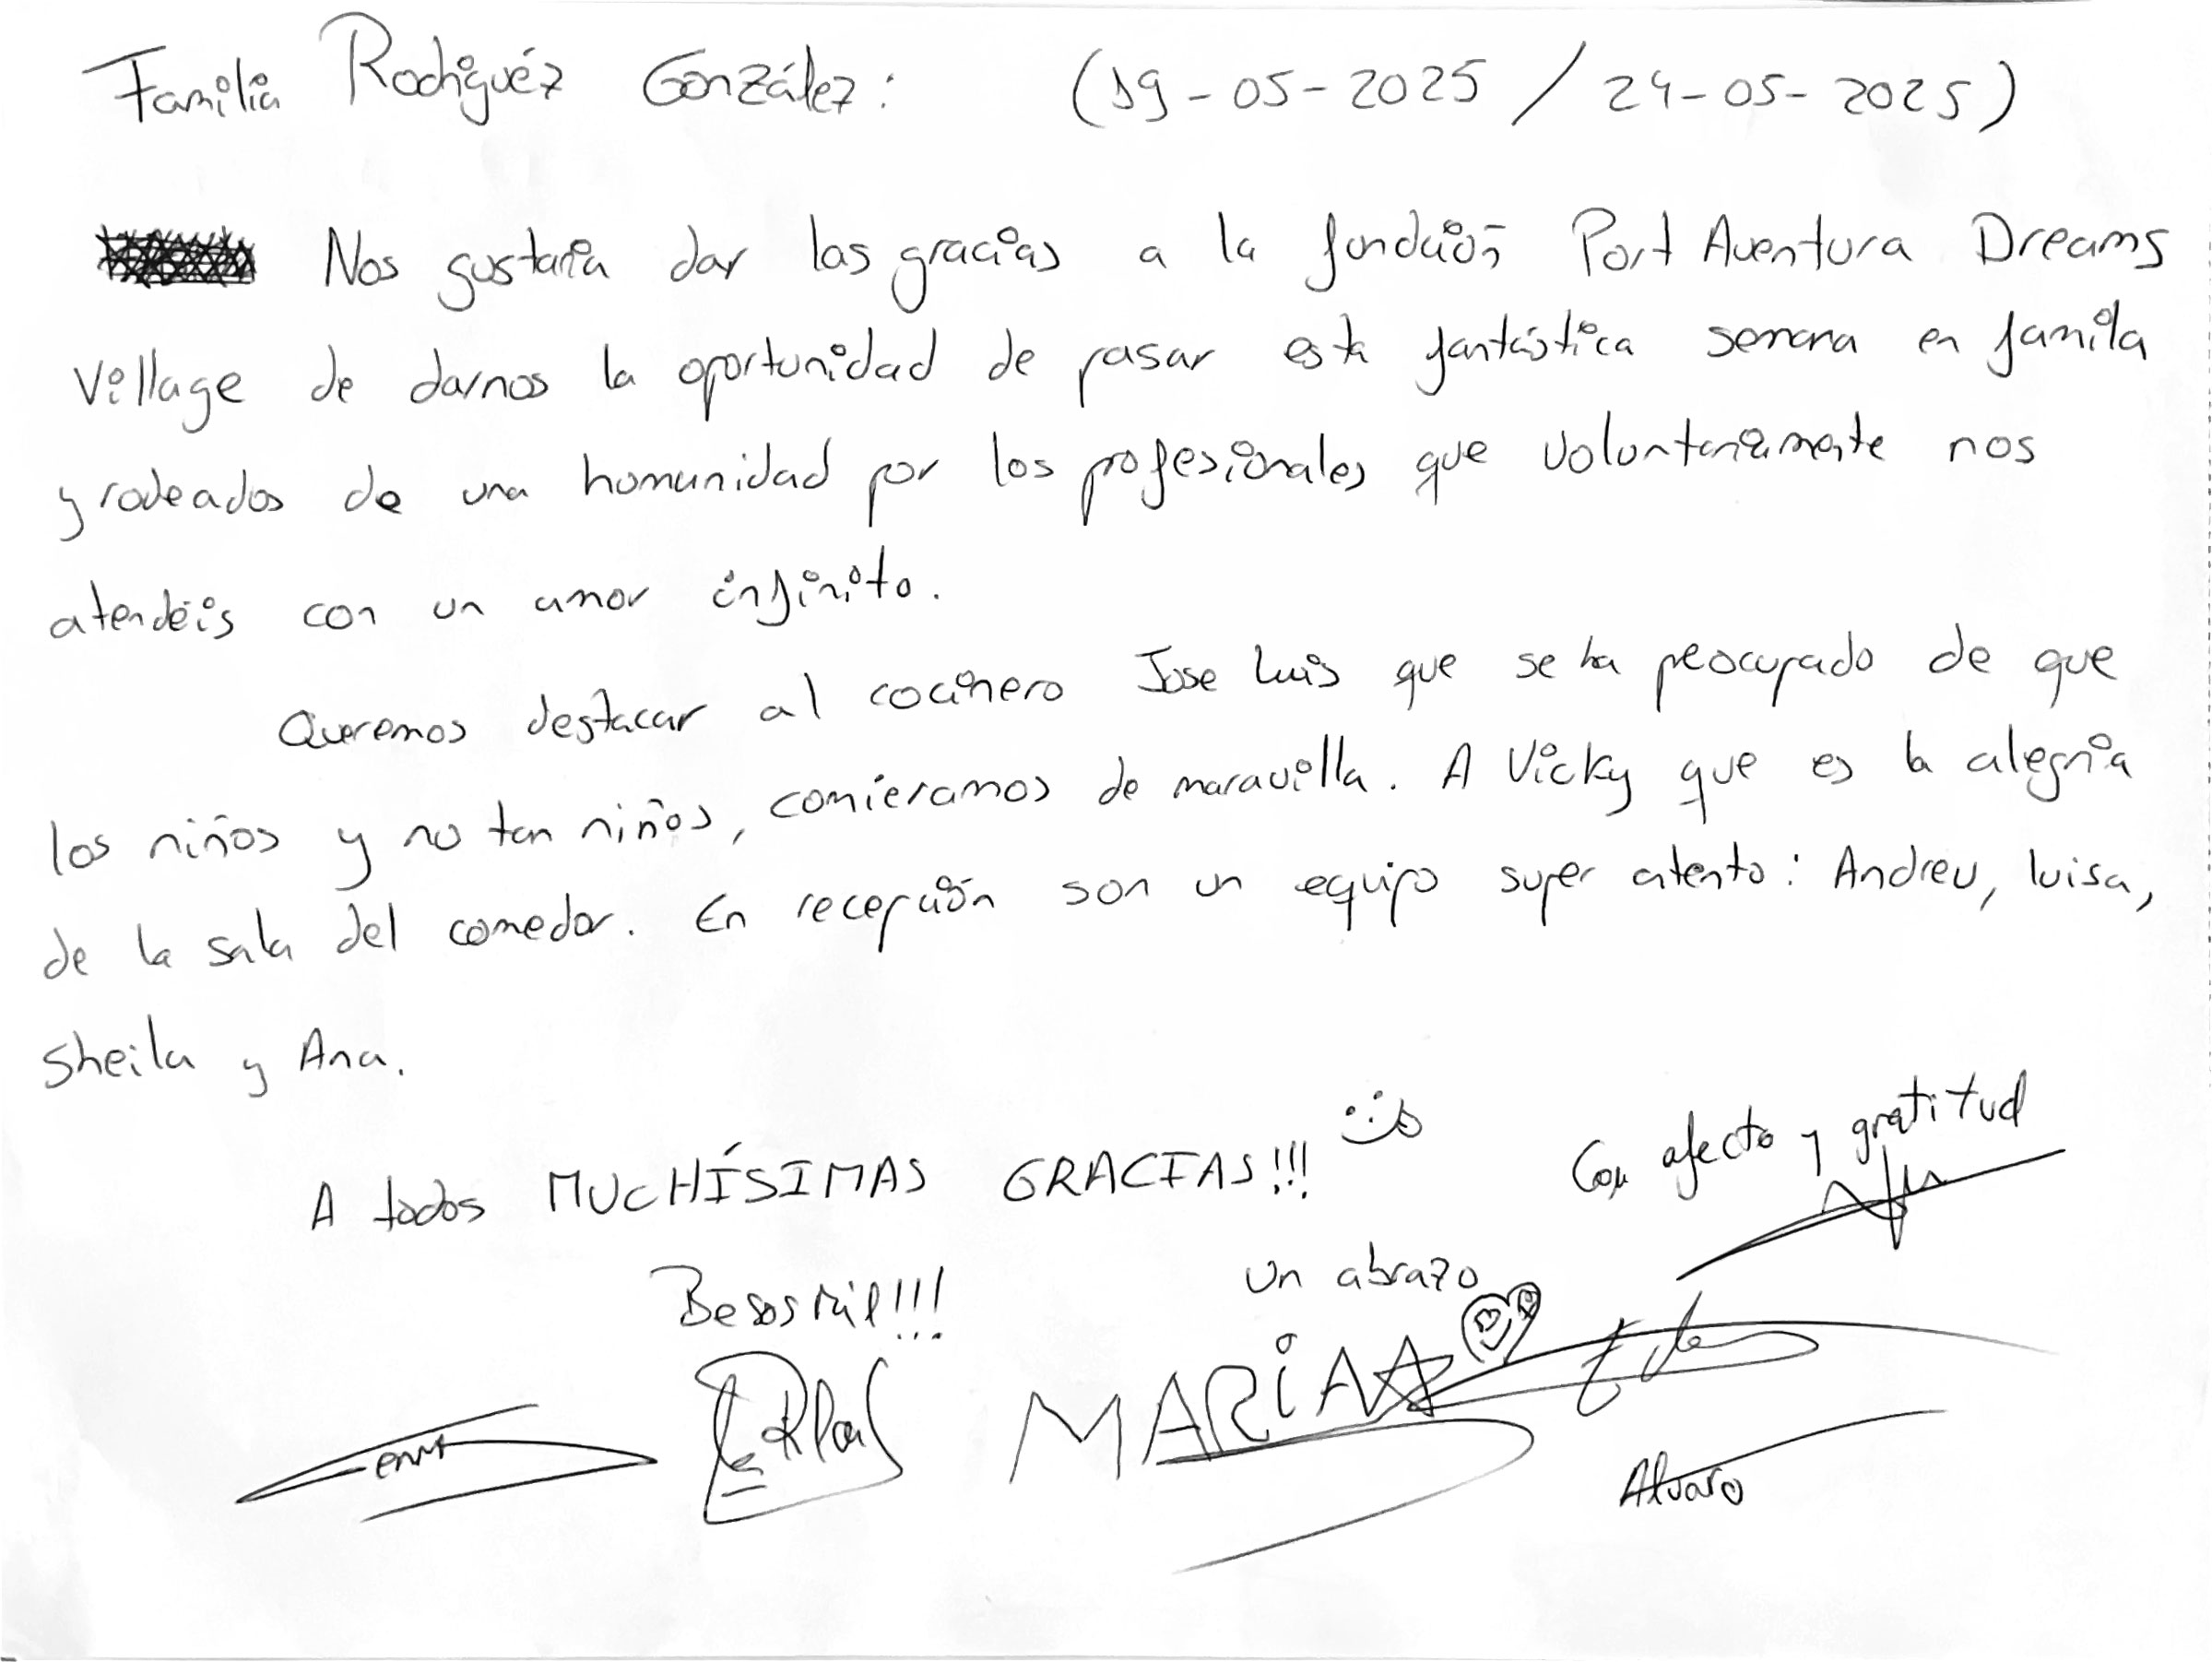 Familia Rodríguéz González: (19-05-2025 / 24-05-2025)
Nos gustaría dar las gracias a la fundación Port Aventura Dreams
Village de darnos la oportunidad de pasar esta fantástica semana en familia
y rodeados de una humanidad por los profesionales que voluntariamente nos
atendéis con un amor infinito.
Queremos destacar al cocinero Jose Luis que se ha preocupado de que
los niños y no tan niños, comieramos de maravilla. A Vicky que es la alegría
de la sala del comedor. En recepción son un equipo super atento: Andreu, Luisa,
Sheila y Ana.
A todos MUCHÍSIMAS GRACIAS!!!
Con afecto y gratitud
Besos mil!!!
Un abrazo
MARIA
Alvaro